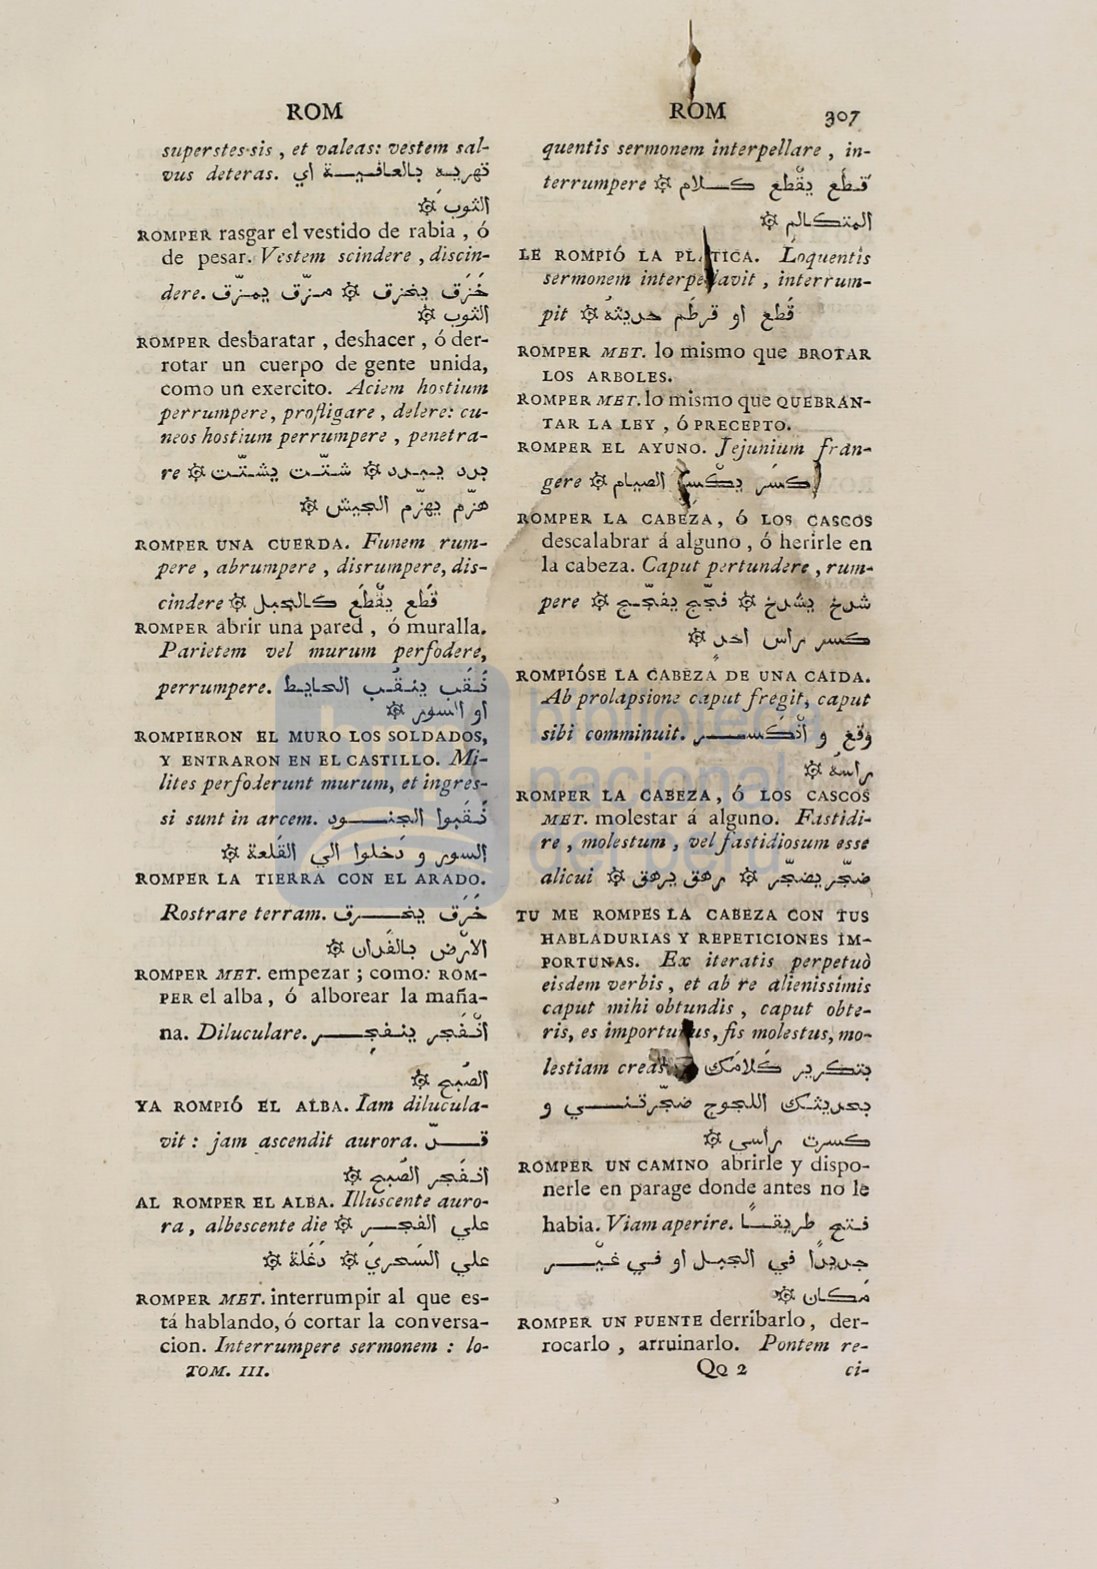 ROM
superstes sis, et valeas: vestem sal-
vus deteras. تهريه بالعافية اي
الثوب ۞
ROMPER rasgar el vestido de rabia, ó
de pesar. Vestem scindere, discin-
dere. خزق يخزق ۞ مزق يمزق
الثوب ۞
ROMPER desbaratar, deshacer, ó der-
rotar un cuerpo de gente unida,
como un exercito. Aciem hostium
perrumpere, profligare, delere: cu-
neos hostium perrumpere, penetra-
re ۞ برد يبرد ۞ شتّت يشتّت
هزّم يهزّم الجيش ۞
ROMPER UNA CUERDA. Funem rum-
pere, abrumpere, disrumpere, dis-
cindere ۞ قطع يقطع كالحبل
ROMPER abrir una pared, ó muralla.
Parietem vel murum perfodere,
perrumpere. نقب ينقب الحايط
او السور ۞
ROMPIERON EL MURO LOS SOLDADOS,
Y ENTRARON EN EL CASTILLO. Mi-
lites perfoderunt murum, et ingres-
si sunt in arcem. نقبوا الجنود
السور و دخلوا الي القلعة ۞
ROMPER LA TIERRA CON EL ARADO.
Rostrare terram. خرق يخرق
الارض بالفدان ۞
ROMPER MET. empezar; como: ROM-
PER el alba, ó alborear la maña-
na. Diluculare. انفجر ينفجر
الصبح ۞
YA ROMPIÓ EL ALBA. Iam dilucula-
vit: jam ascendit aurora. قد
انفجر الصبح ۞
AL ROMPER EL ALBA. Illuscente auro-
ra, albescente die ۞ علي الفجر
علي السحري ۞ دغلة ۞
ROMPER MET. interrumpir al que es-
tá hablando, ó cortar la conversa-
cion. Interrumpere sermonem: lo-
TOM. III.
ROM 307
quentis sermonem interpellare, in-
terrumpere ۞ قطع يقطع كلام
المتكالم ۞
LE ROMPIÓ LA PLATICA. Loquentis
sermonem interpellavit, interrum-
pit ۞ قطع او قرطم حديثه
ROMPER MET. lo mismo que BROTAR
LOS ARBOLES.
ROMPER MET. lo mismo que QUEBRAN-
TAR LA LEY, Ó PRECEPTO.
ROMPER EL AYUNO. Jejunium fran-
gere ۞ كسر يكسر الصيام
ROMPER LA CABEZA, Ó LOS CASCOS
descalabrar á alguno, ó herirle en
la cabeza. Caput pertundere, rum-
pere ۞ شدخ يشدخ ۞ فجّج يفجّج
كسر راس احد ۞
ROMPIÓSE LA CABEZA DE UNA CAIDA.
Ab prolapsione caput fregit, caput
sibi comminuit. وقع و انكسر
راسه ۞
ROMPER LA CABEZA, Ó LOS CASCOS
MET. molestar á alguno. Fastidi-
re, molestum, vel fastidiosum esse
alicui ۞ ضجّر يضجّر ۞ رهق يرهق ۞
TU ME ROMPES LA CABEZA CON TUS
HABLADURIAS Y REPETICIONES IM-
PORTUNAS. Ex iteratis perpetuò
eisdem verbis, et ab re alienissimis
caput mihi obtundis, caput obte-
ris, es importunus, fis molestus, mo-
lestiam creas بتكرير كلامك
بحديثك اللجوج ضجّرتني و
كسرت راسي ۞
ROMPER UN CAMINO abrirle y dispo-
nerle en parage donde antes no le
habia. Viam aperire. فتح طريقا
جديدا في الجبل او في غير
مكان ۞
ROMPER UN PUENTE derribarlo, der-
rocarlo, arruinarlo. Pontem re-
Qq 2 ci-
bnp biblioteca
nacional
del perú